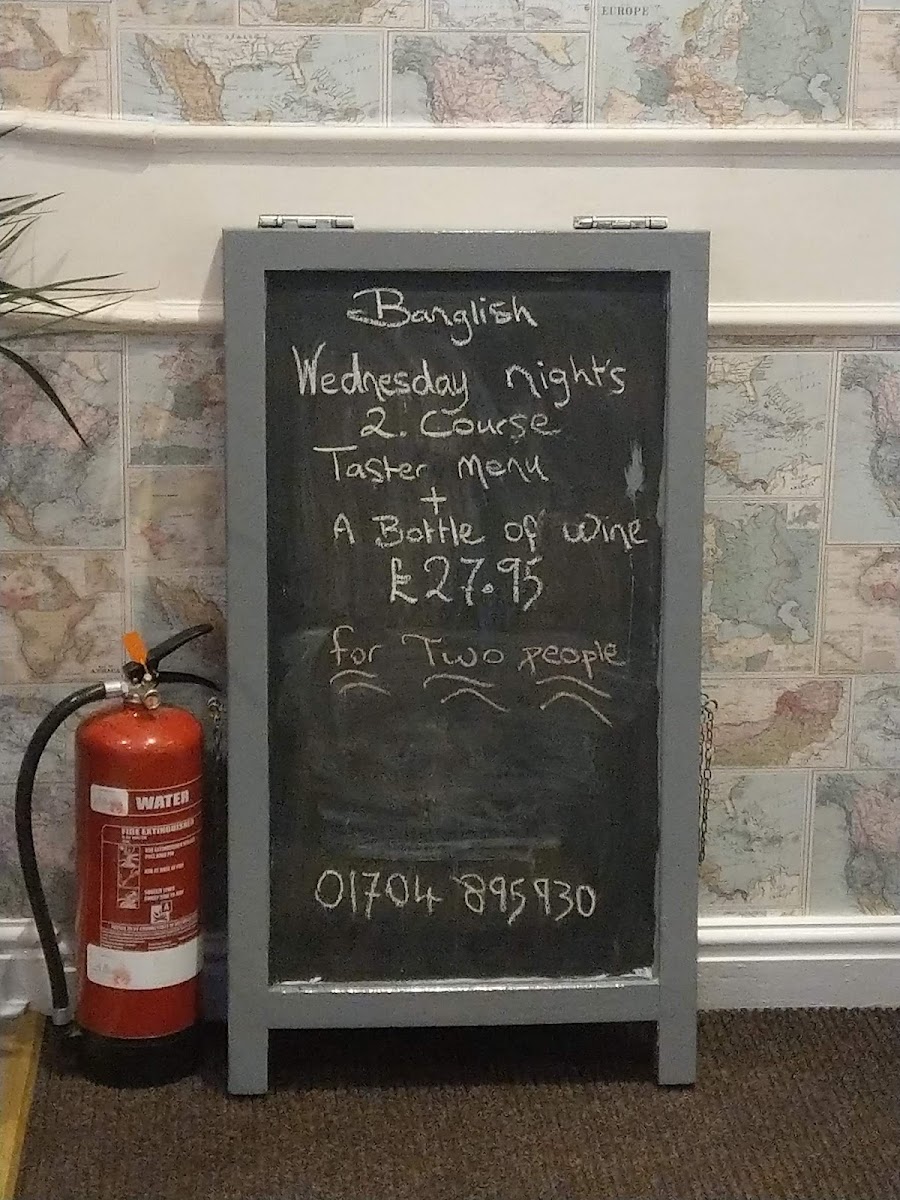 EUROPE
Banglish
Wednesday night's
2. Course
Taster Menu
+
A Bottle of wine
£27.95
for Two people
01704 895930
WATER
FIRE EXTINGUISHER